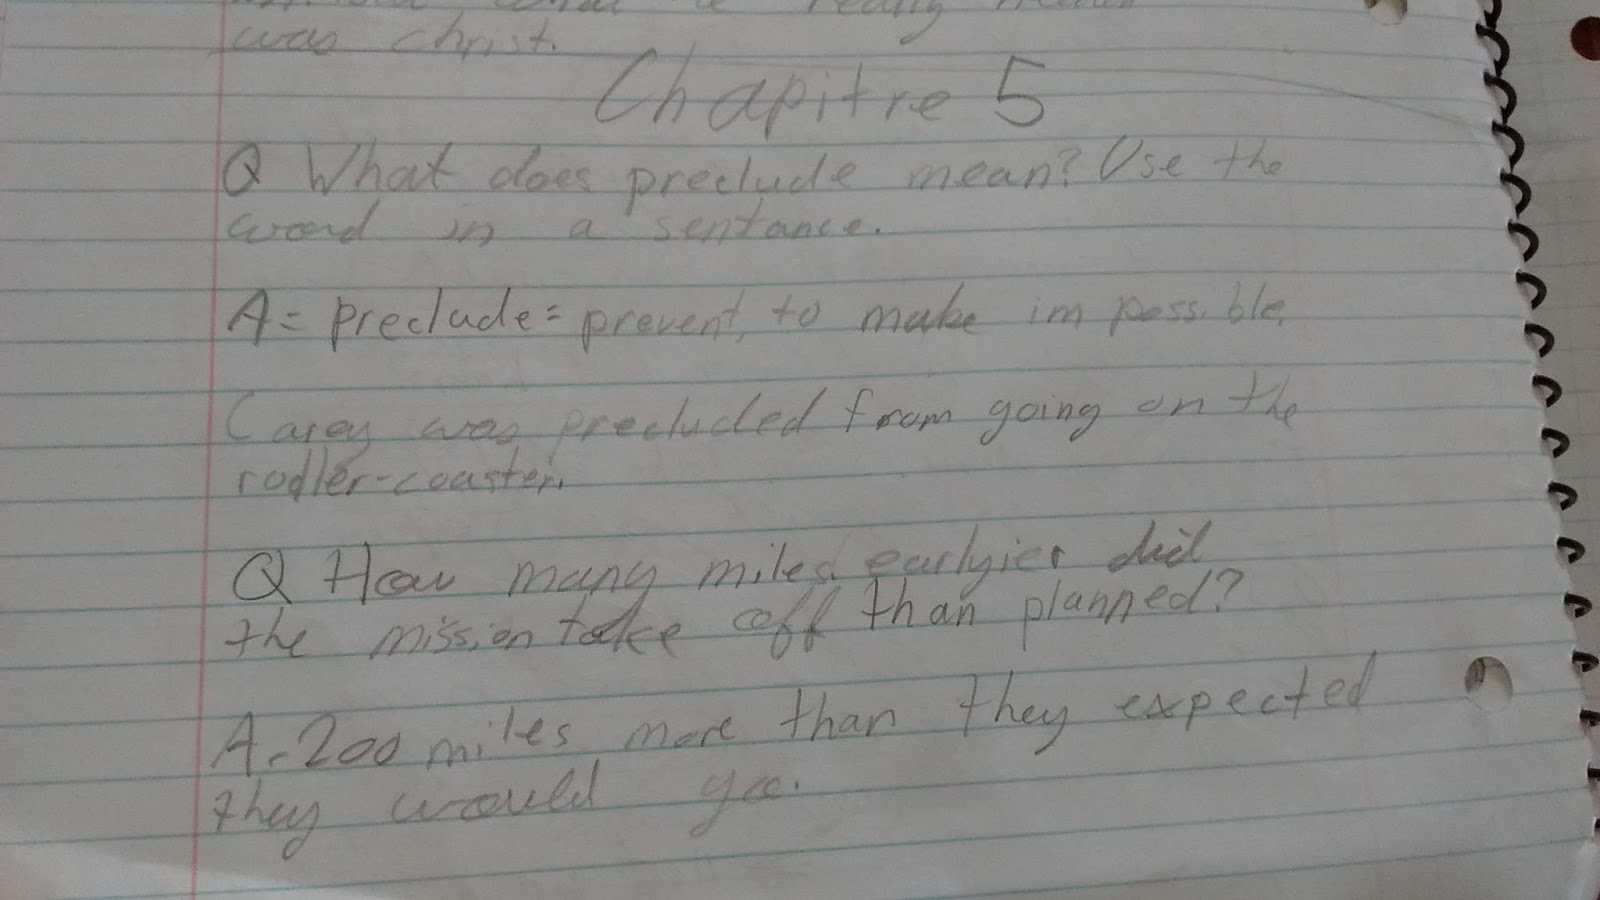 really
was christ.
Chapitre 5
Q What does preclude mean? Use the
word in a sentance.
A= preclude= prevent, to make impossible.
Carey was precluded from going on the
rodler-coaster.
Q How many miles earlyier did
the mission take off than planned?
A-200 miles more than they expected
they would go.